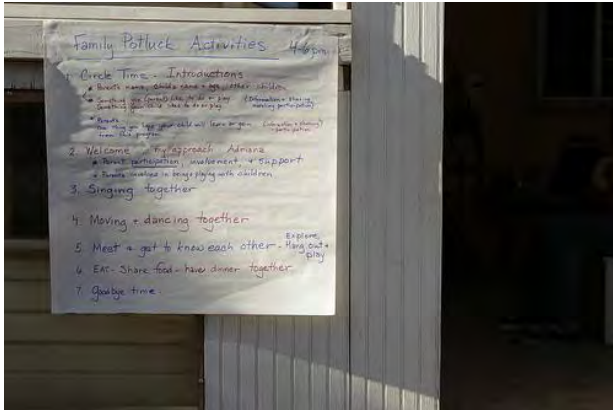 Family Potluck Activities 4-6 pm
1. Circle Time - Introductions
• Parents name, child's name + age, other children
• Something you (parent) like to do or play (Information + sharing,
Something your child likes to do or play. modeling participation)
• Parents
One thing you hope your child will learn or gain (information + sharing)
from this program - participation
2. Welcome my approach Adriana
• Parent participation, involvement, + support
• Parents involved in being + playing with children
3. Singing together
4. Moving + dancing together
5. Meet + get to know each other - Explore,
Hang out +
play
6. EAT - Share food - have dinner together
7. Goodbye time